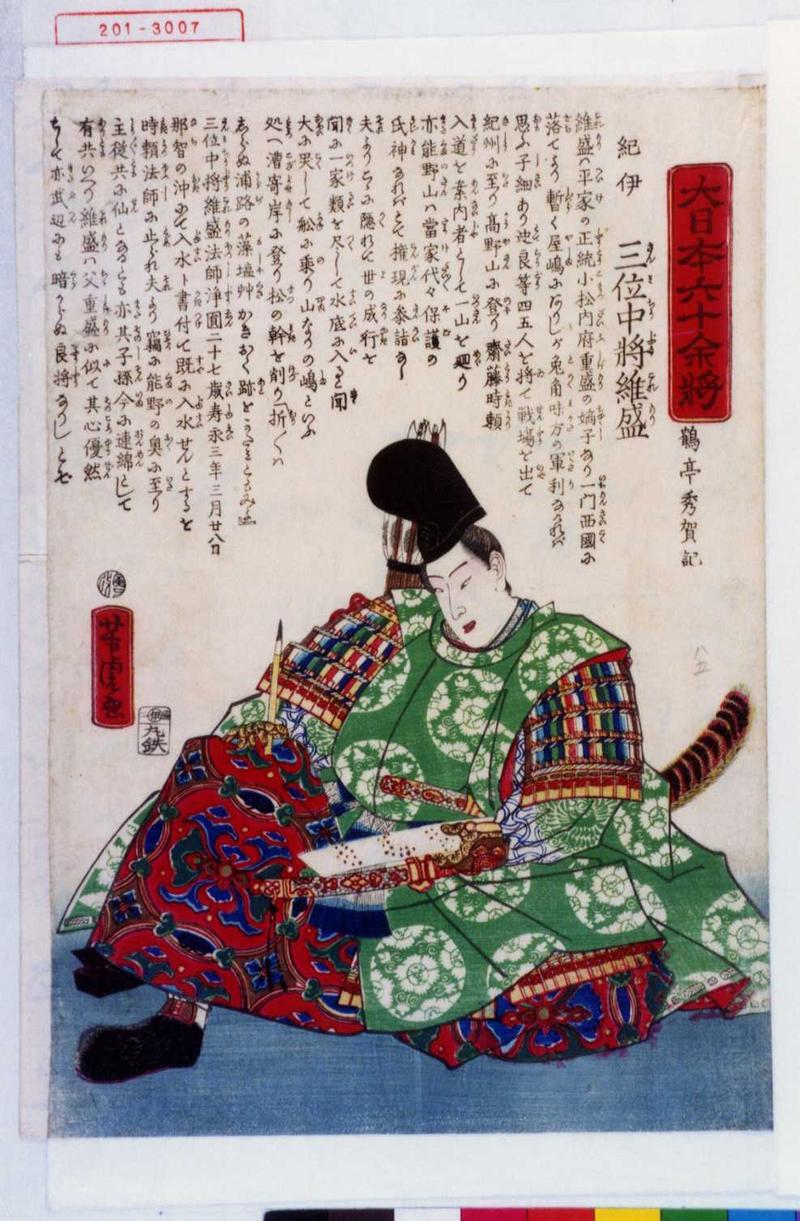 201-3007
大日本六十余将
鶴亭秀賀記
紀伊 三位中将維盛
維盛ハ平家の正統小松内府重盛の嫡子なり一門西國に
落てより暫く屋嶋にありしが兎角味方の軍利なければ
思ふ子細あり迚良等四五人を将て戦場を出て
紀州に至り高野山に登り齋藤時頼
入道を案内者として一山を廻り
亦熊野山ハ當家代々保護の
氏神なればとて権現に参詣なし
夫より に隠れて世の成行を
聞に一家類を尽して水底に入ると聞
大に哭して舩に乗り山なりの嶋といふ
処へ漕寄岸に登り松の幹を削り折ふしハ
しらぬ浦路の藻塩艸かきおく跡を かたみとも
三位中将維盛法師浄圓二十七歳寿永三年三月廿八日
那智の沖にて入水ト書付て既に入水せんとするを
時頼法師に止られ夫より竊に熊野の奥に至り
主従共に仙となるとも亦其子孫今に連綿として
有共いへり維盛ハ父重盛に似て其心優然
として亦武辺にも暗からぬ良将なりしとぞ
芳虎画
丸鉄
八五